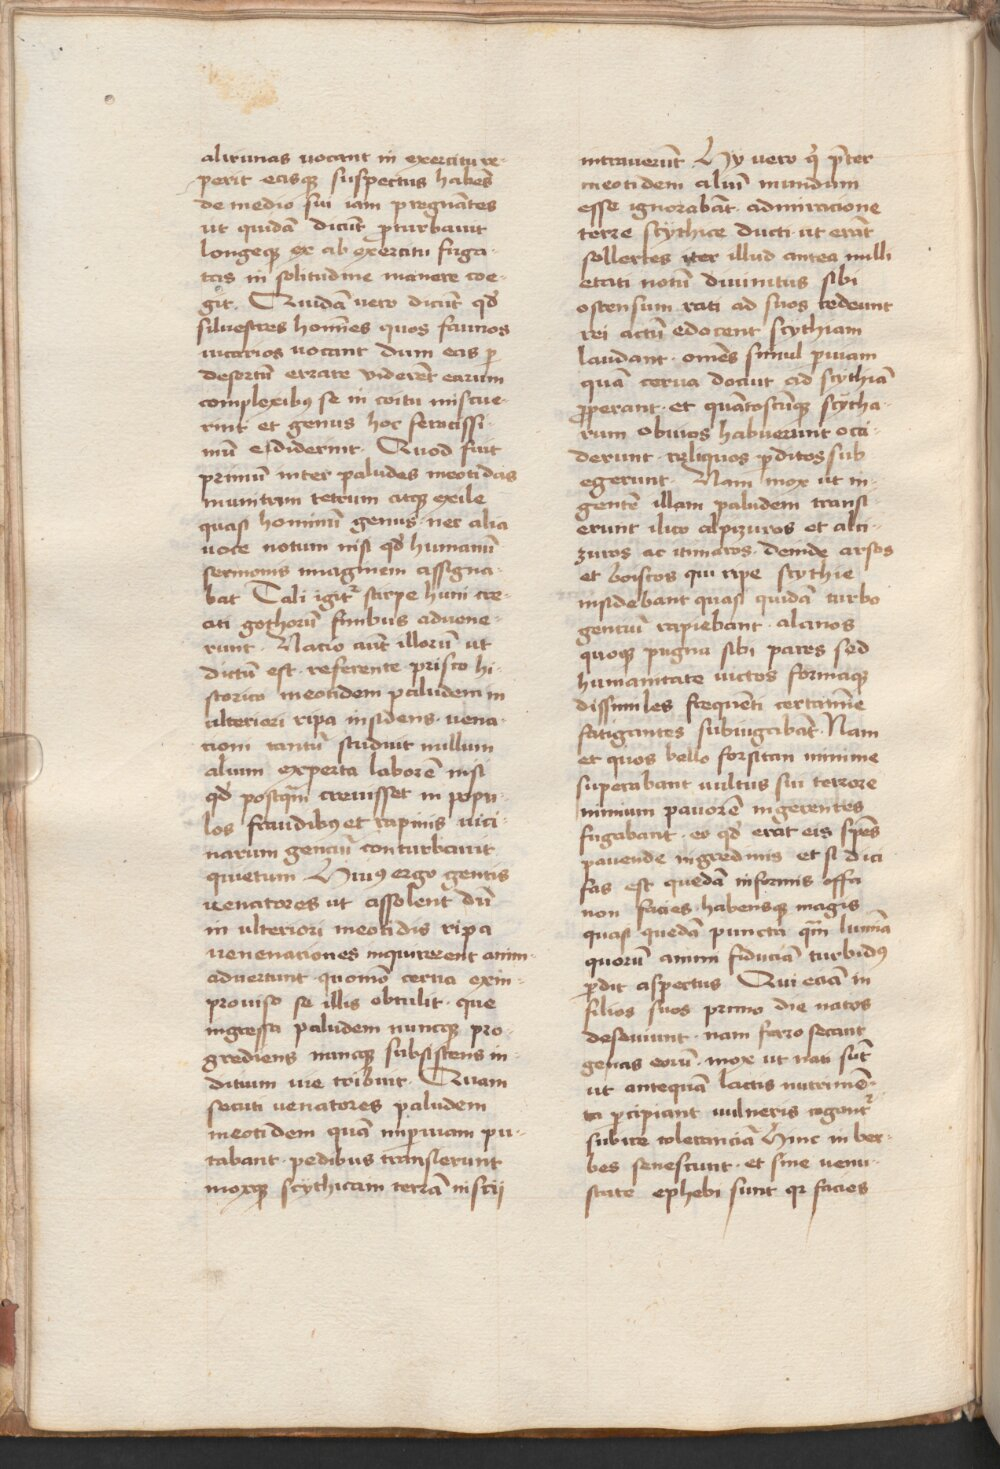 alirunas uocant in exercitu re-
perit easq̨ suspectus habēs
de medio sui iam p̃regnātes
ut quidā dicūt ꝓturbauit
longeq̨ ex ab exercitu fuga-
tas in solitudine manere coe-
git. Quidā vero dicūt qđ
siluestres homīes quos faunos
uicarios uocant dum eas ꝑ
desertū errare viderēt earum
complexibꝰ se in coitu miscue-
rint et genus hoc ferocissi-
mū ediderint. Quod fuit
primū inter paludes meotidas
munitum tetrum atq̨ exile
quasi hominū genus. nec alia
voce notum nisi qđ humanū
sermonis imaginem assigna-
bat Tali igit̃ stirpe huni cre-
ati gothorū finibus aduene-
runt. Nacio aūt illorū ut
dictū est. referente prisco hi-
storico meotidem paludem in
ulteriori ripa insidens. uena-
cioni tantū studuit nullum
alium experta laborē nisi
qđ postq̄m creuisset in popu-
los fraudibꝰ et rapinis uici-
narum genciū conturbauit
quietum Huiꝰ ergo gentis
uenatores ut assolent dū
in ulteriori meotidis ripa
uenenaciones inquirerent anim-
aduertunt quomō cerua exin-
prouiso se illis obtulit. que
ingressa paludem nuncq̨ pro-
grediens nuncq̨ subsistens in-
ditium uie tribuit. Quam
secuti uenatores paludem
meotidem quā imꝑuiam pu-
tabant. pedibus transierunt
moxq̨ scythicam terrā inscij
intrauerūt Hy vero q̃ p̄ter
meotidem aliū mundum
esse ignorabāt. admiracione
terre scythice ducti. ut erāt
sollertes iter illud antea nulli
etati notū diuinitus sibi
ostensum rati ad suos redeunt
rei actū edocent scythiam
laudant. omēs simul ꝑuiam
quā cerua docuit ad scythiā
ꝓperant. et quātoscūq̨ scytha-
rum obuios habuerunt occi-
derunt. reliquos ꝑditos sub
egerunt. Nam mox ut in-
gentē illam paludem transi-
erunt ilico alpizuros et alci-
zuros ac itimaros. deinde arsos
et boistos qui ripe scythie
insidebant quasi quidā turbo
gentiū rapiebant. alanos
quoq̨ pugna sibi pares sed
humanitate uictos formaq̨
dissimiles frequēti certamīe
fatigantes subiugabāt. Nam
et quos bello forsitan minime
superabant uultus sui terrore
nimium pauorē ingerentes
fugabant. eo qđ erat eis spēs
pauende nigredinis et si dici
fas est quedā informis offa
non facies. habensq̨ magis
quasi quedā puncta q̄m lumīa
quorū animi fiduciā turbidꝰ
ꝓdit aspectus. Qui eciā in
filios suos primo die natos
deseuiunt. nam ferro secant
genas eorū. mox ut nati sūt
ut antequā lactis nutrimē-
ta ꝑcipiant vulneris cogant̃
subire toleranciā Hinc inber-
bes senescunt. et sine uenu-
state ephebi sunt qꝛ facies